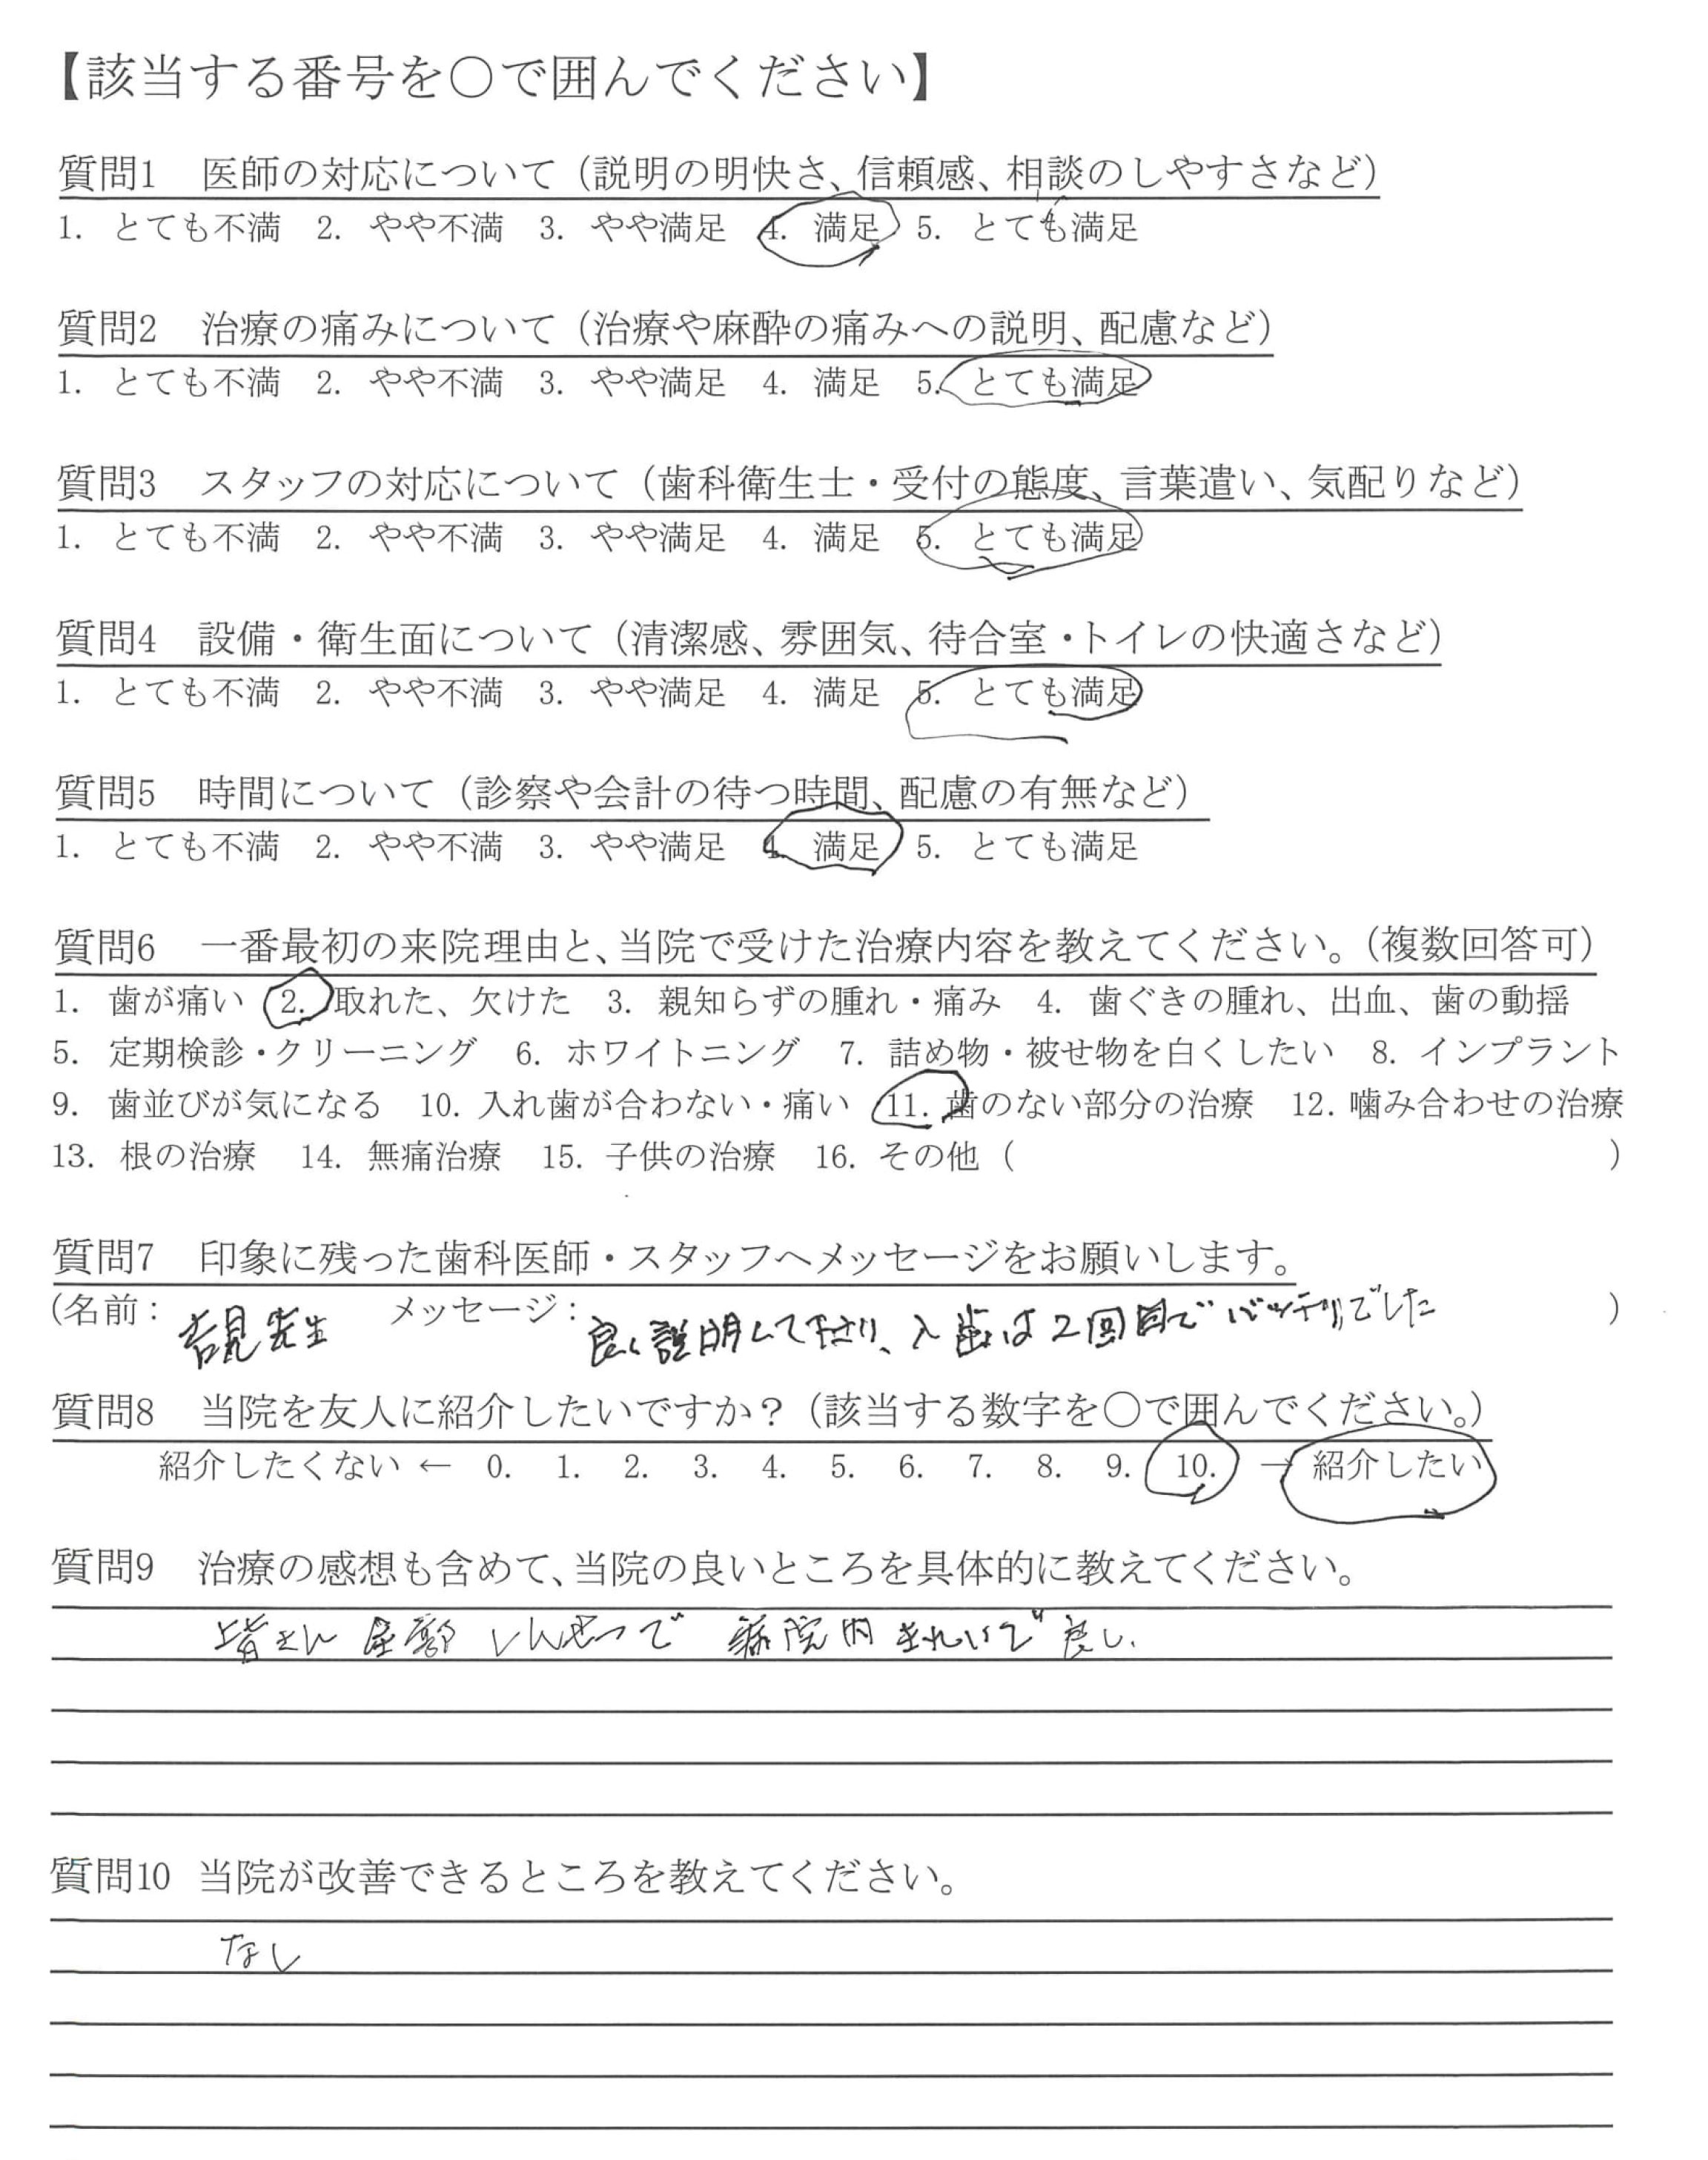 【該当する番号を○で囲んでください】
質問1　医師の対応について（説明の明快さ、信頼感、相談のしやすさなど）
1. とても不満　2. やや不満　3. やや満足　4. 満足　5. とても満足
質問2　治療の痛みについて（治療や麻酔の痛みへの説明、配慮など）
1. とても不満　2. やや不満　3. やや満足　4. 満足　5. とても満足
質問3　スタッフの対応について（歯科衛生士・受付の態度、言葉遣い、気配りなど）
1. とても不満　2. やや不満　3. やや満足　4. 満足　5. とても満足
質問4　設備・衛生面について（清潔感、雰囲気、待合室・トイレの快適さなど）
1. とても不満　2. やや不満　3. やや満足　4. 満足　5. とても満足
質問5　時間について（診察や会計の待つ時間、配慮の有無など）
1. とても不満　2. やや不満　3. やや満足　4. 満足　5. とても満足
質問6　一番最初の来院理由と、当院で受けた治療内容を教えてください。（複数回答可）
1. 歯が痛い　2. 取れた、欠けた　3. 親知らずの腫れ・痛み　4. 歯ぐきの腫れ、出血、歯の動揺
5. 定期検診・クリーニング　6. ホワイトニング　7. 詰め物・被せ物を白くしたい　8. インプラント
9. 歯並びが気になる　10. 入れ歯が合わない・痛い　11. 歯のない部分の治療　12. 噛み合わせの治療
13. 根の治療　14. 無痛治療　15. 子供の治療　16. その他（　　）
質問7　印象に残った歯科医師・スタッフへメッセージをお願いします。
（名前：吉見先生　メッセージ：良く説明して下さり、入歯は2回目でバッチリでした）
質問8　当院を友人に紹介したいですか？（該当する数字を○で囲んでください。）
紹介したくない ← 0. 1. 2. 3. 4. 5. 6. 7. 8. 9. 10. → 紹介したい
質問9　治療の感想も含めて、当院の良いところを具体的に教えてください。
皆さん 全部 しんせつで 病院内 きれいで 良し.
質問10 当院が改善できるところを教えてください。
なし